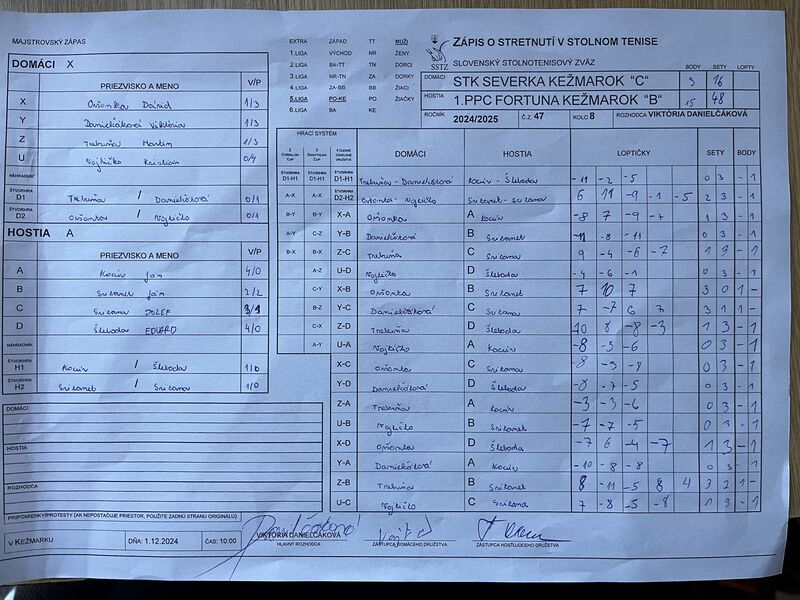 MAJSTROVSKÝ ZÁPAS
EXTRA ZÁPAD TT MUŽI
1.LIGA VÝCHOD NR ŽENY
2.LIGA BA-TT TN DORCI
3.LIGA NR-TN ZA DORKY
4.LIGA ZA-BB BB ŽIACI
5.LIGA PO-KE PO ŽIAČKY
6.LIGA BA KE
SSTZ
ZÁPIS O STRETNUTÍ V STOLNOM TENISE
SLOVENSKÝ STOLNOTENISOVÝ ZVÄZ
BODY SETY LOPTY
DOMÁCI STK SEVERKA KEŽMAROK "C" 3 16
HOSTIA 1.PPC FORTUNA KEŽMAROK "B" 15 48
ROČNÍK 2024/2025 Č.Z. 47 KOLO 8 ROZHODCA VIKTÓRIA DANIELČÁKOVÁ
DOMÁCI X
PRIEZVISKO A MENO V/P
X Oršonka Dávid 1/3
Y Danielčáková Viktória 1/3
Z Trebuňa Martin 1/3
U Vojtičko Kristián 0/4
NÁHRADNÍK
ŠTVORHRA D1 Trebuňa / Danielčáková 0/1
ŠTVORHRA D2 Oršonka / Vojtičko 0/1
HOSTIA A
PRIEZVISKO A MENO V/P
A Kocúr Ján 4/0
B Srilanek Ján 2/2
C JOZEF
D Šleboda EDUARD 4/0
NÁHRADNÍK
ŠTVORHRA H1 Kocúr / Šleboda 1/0
ŠTVORHRA H2 1/0
DOMÁCI
HOSTIA
ROZHODCA
PRIPOMIENKY/PROTESTY (AK NEPOSTAČUJE PRIESTOR, POUŽITE ZADNÚ STRANU ORIGINÁLU)
V KEŽMARKU DŇA: 1.12.2024 ČAS: 10:00
VIKTÓRIA DANIELČÁKOVÁ
HLAVNÝ ROZHODCA
ZÁSTUPCA DOMÁCEHO DRUŽSTVA
ZÁSTUPCA HOSŤUJÚCEHO DRUŽSTVA
HRACÍ SYSTÉM DOMÁCI HOSTIA LOPTIČKY SETY BODY
ŠTVORHRA D1-H1 ŠTVORHRA D1-H1 ŠTVORHRA D1-H1 Trebuňa - Danielčáková Kocúr - Šleboda -11 -2 -5 0 3 -1
A-X A-X ŠTVORHRA D2-H2 Oršonka - Vojtičko 6 11 -9 -1 -5 2 3 -1
B-Y B-Y X-A Oršonka A Kocúr -8 7 -9 -7 1 3 -1
A-Y C-Z Y-B Danielčáková B -11 -8 -11 0 3 -1
B-X B-X Z-C Trebuňa C 9 -4 -6 -7 1 3 -1
A-Z U-D Vojtičko D Šleboda -4 -6 -1 0 3 -1
C-Y X-B Oršonka B 7 10 7 3 0 1-
B-Z Y-C Danielčáková C 7 -7 6 7 3 1 1-
C-X Z-D Trebuňa D Šleboda 10 8 -8 -3 1 3 -1
A-Y U-A Vojtičko A Kocúr -8 -3 -6 0 3 -1
X-C Oršonka C -8 -3 -8 0 3 -1
Y-D Danielčáková D Šleboda -8 -7 -5 0 3 -1
Z-A Trebuňa A Kocúr -3 -3 -6 0 3 -1
U-B Vojtičko B -7 -7 -5 0 3 -1
X-D Oršonka D Šleboda -7 6 -4 -7 1 3 -1
Y-A Danielčáková A Kocúr -10 -8 -8 0 3 -1
Z-B Trebuňa B 8 -11 -5 8 4 3 2 1-
U-C Vojtičko C 7 -8 -5 -8 1 3 -1